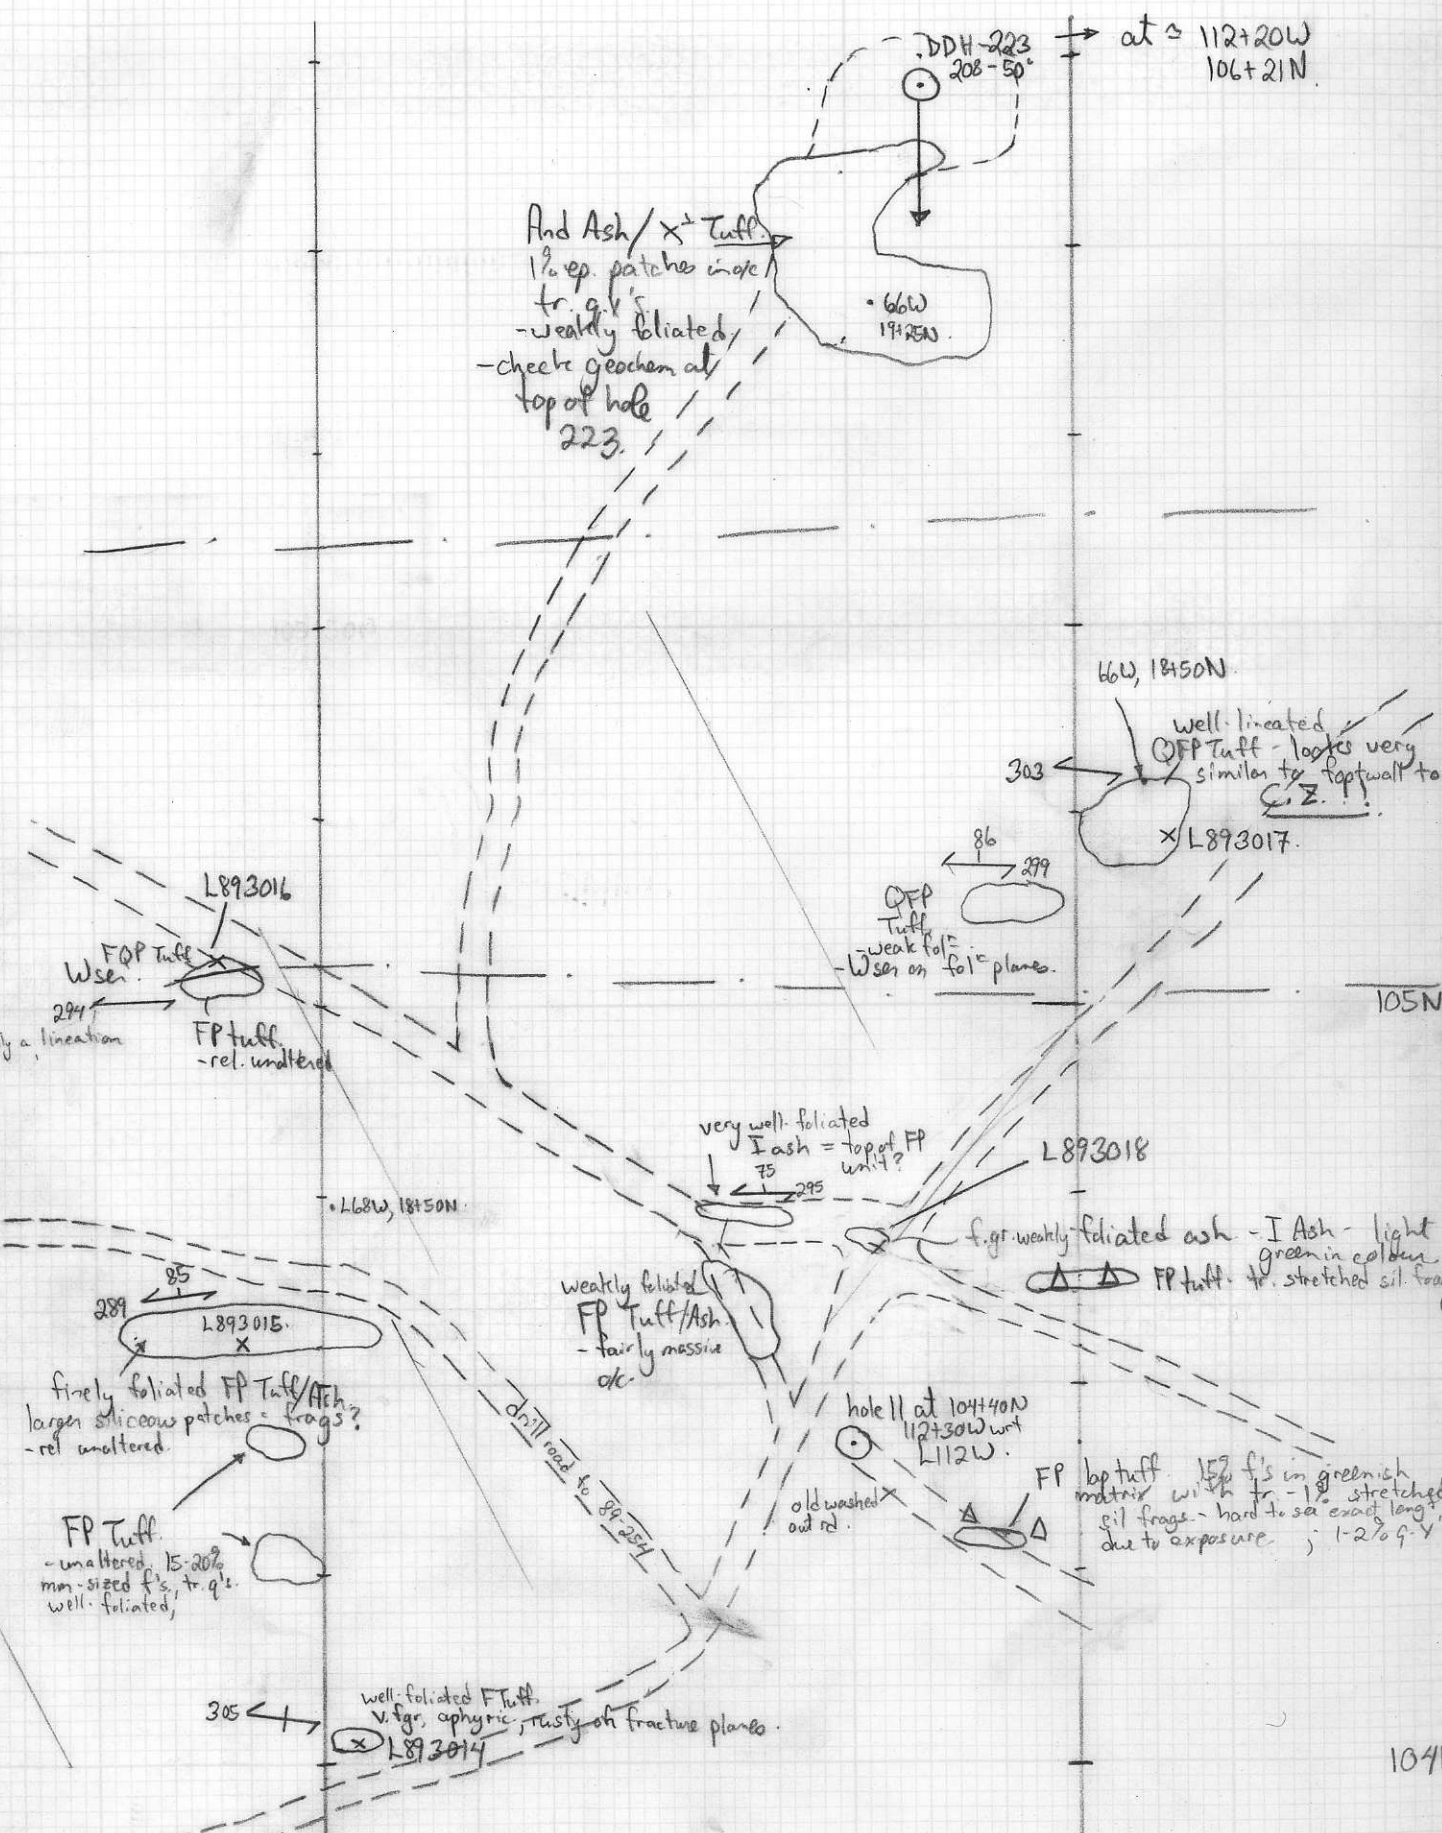 DDH-223
208-50°
at ≈ 112+20W
106+21N
And Ash/X Tuff.
1% ep. patches in o/c
tr. q.v's
-weakly foliated
-check geochem at
top of hole
223.
66W
19+25N
66W, 18+50N
well-lineated
QFP Tuff - looks very
similar to footwall to
C.Z.!!
303
L893017.
86
299
QFP
Tuff
-weak fol=
-Wser on fol= planes.
L893016
FQP Tuff
Wser.
294
a lineation
FP tuff.
-rel. unaltered
105N
very well-foliated
I ash = top of FP
unit?
75
295
L893018
.L68W, 18+50N.
f.gr. weakly-foliated ash - I Ash - light
green in colour
FP tuff - tr. stretched sil.
85
289
L893015.
weakly foliated
FP Tuff/Ash
- fairly massive
o/c.
finely foliated FP Tuff/Ash
larger siliceous patches = frags?
-rel unaltered.
drill road to 89-254
hole 11 at 104+40N
112+30W wrt
L112W.
old washed
out rd.
FP lap tuff 15% f's in greenish
matrix with tr.-1% stretched
sil frags. - hard to see exact
due to exposure ; 1-2%
FP Tuff.
-unaltered, 15-20%
mm-sized f's, tr. q's.
well-foliated,
305
well-foliated F Tuff.
v.fgr, aphyric, rusty on fracture planes.
L893014
104